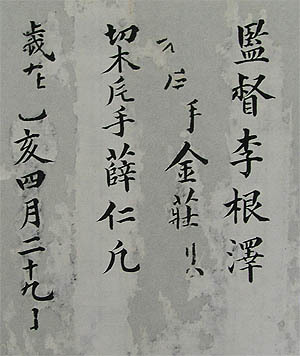 監督李根澤
手金莊
切木片手薛仁凡
歲在乙亥四月二十九日